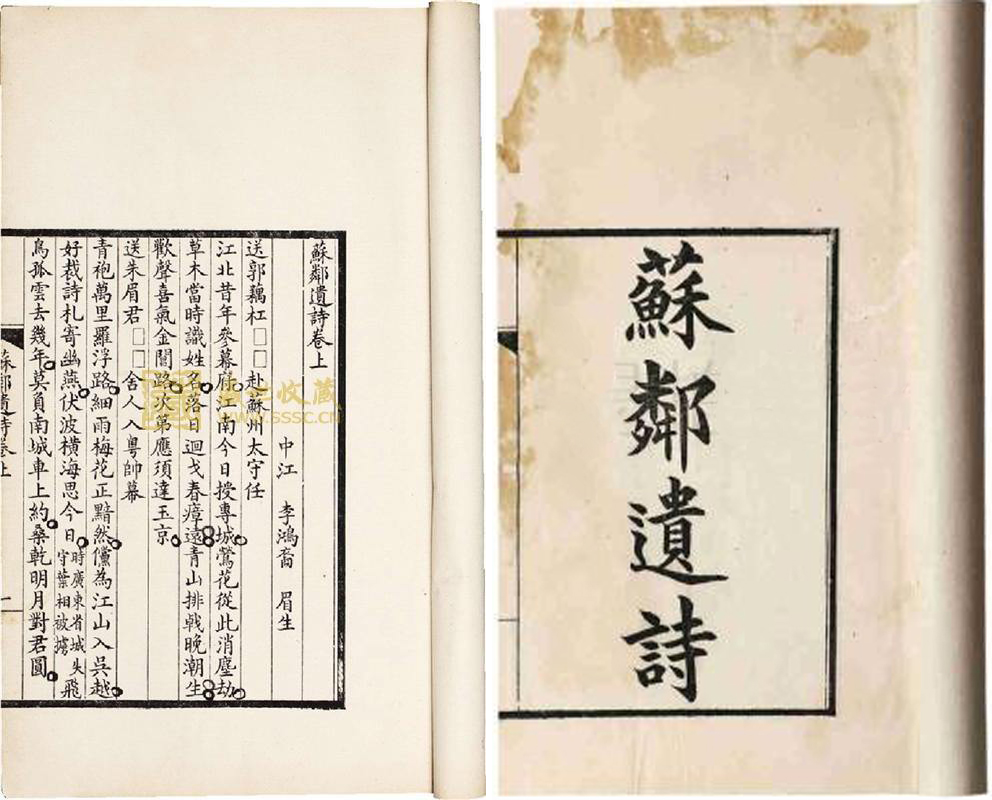 蘇鄰遺詩卷上
中江 李鴻裔 眉生
送郭藕杠□□赴蘇州太守任
江北昔年參幕府江南今日授專城鶯花從此消塵劫
草木當時識姓名落日迴戈春瘴遠青山排戟晚潮生
歡聲喜氣金閶路次第應須達玉京
送朱眉君□□舍人入粵帥幕
青袍萬里羅浮路細雨梅花正黯然儻為江山入吳越
好裁詩札寄幽燕伏波橫海思今日時廣東省城失守葉相被擄飛
鳥孤雲去幾年莫負南城車上約桑乾明月對君圓
蘇鄰遺詩卷上
一
蘇鄰遺詩
收藏
www.sssc.cn